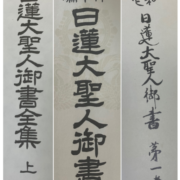 日蓮大聖人御書
日蓮大聖人御書
蓮大聖人御書全集 上